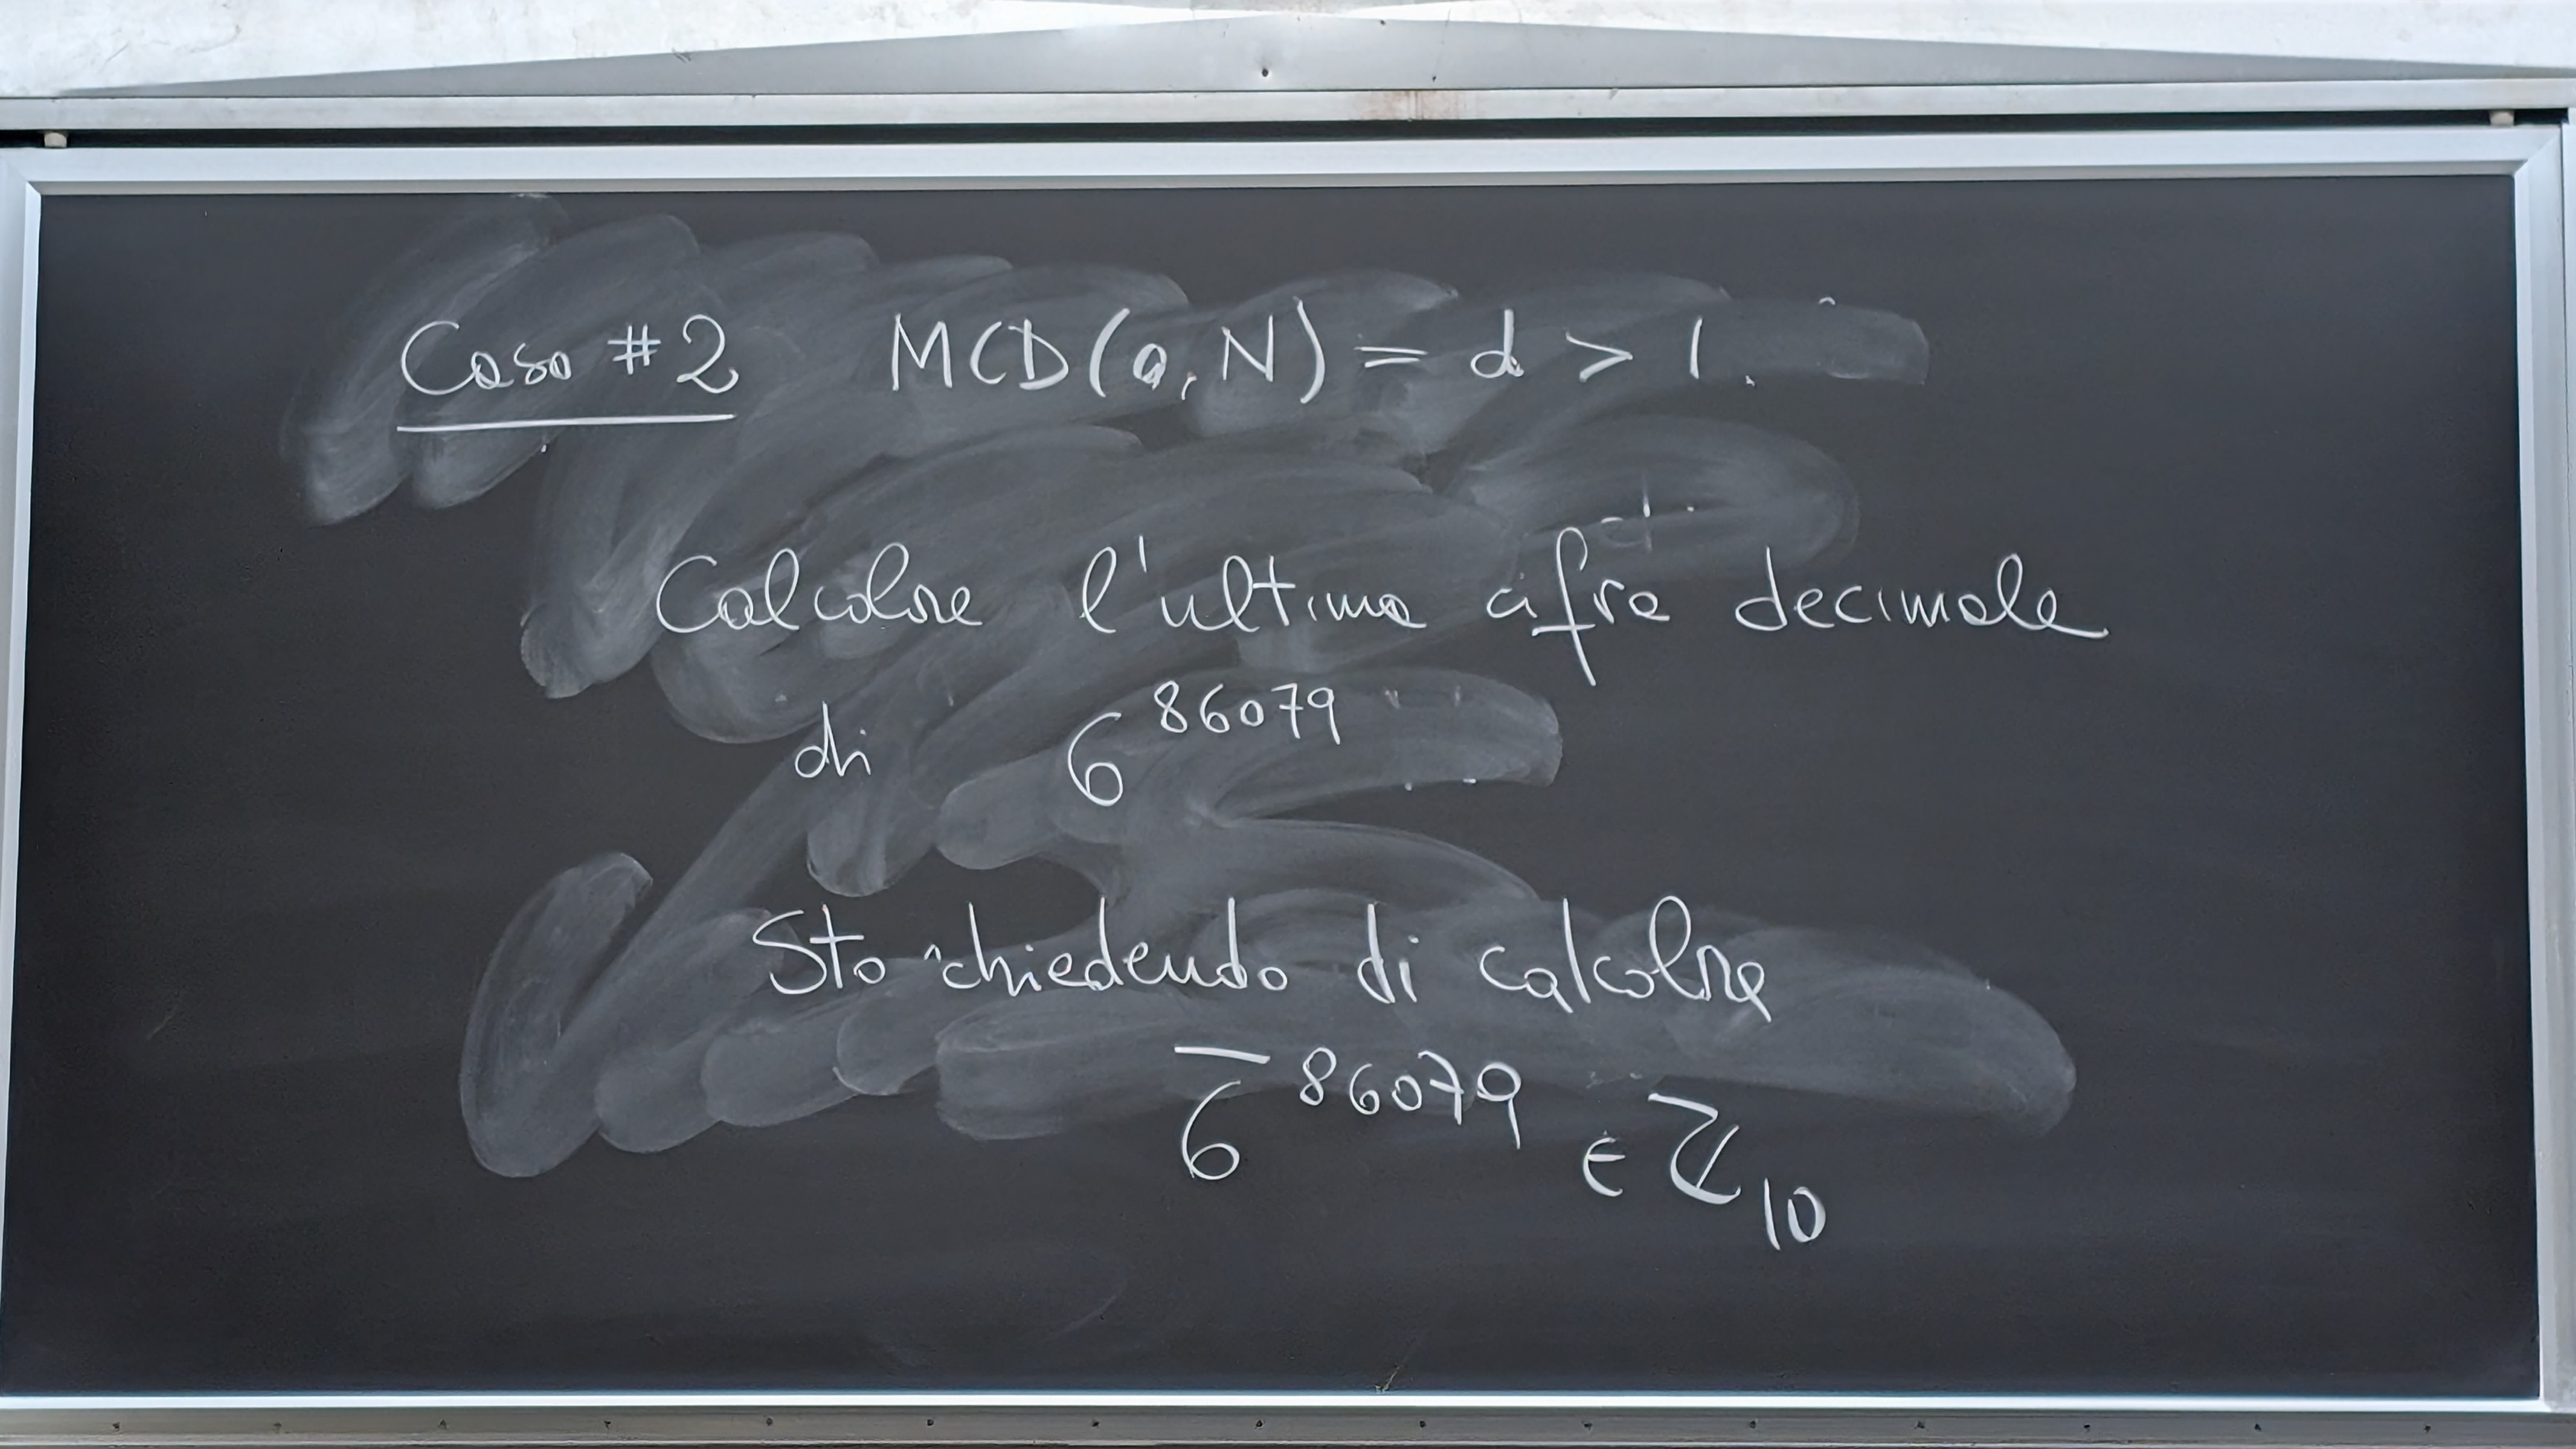 Caso #2 MCD(a,N) = d > 1.
Calcolare l'ultima cifra decimale
di 6^86079
Sto chiedendo di calcolare
6̅^86079 ∈ ℤ_10